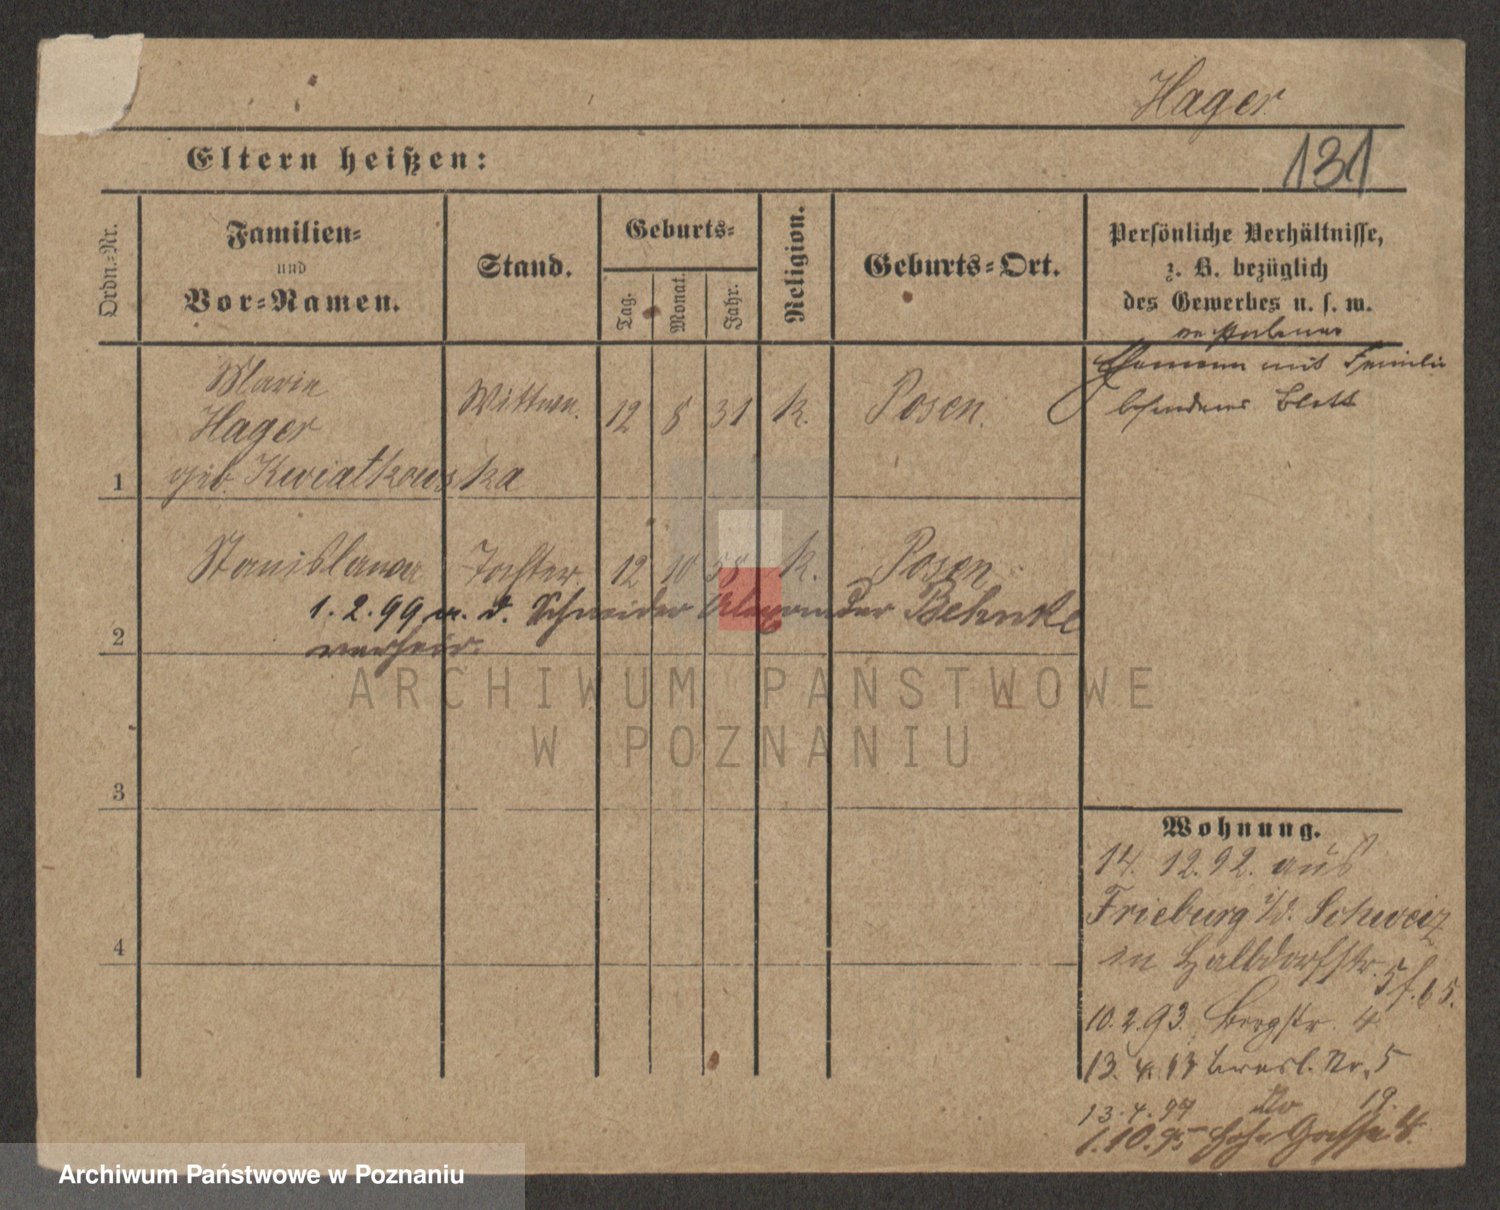 Hager
131
Eltern heißen:
Ordn.-Nr.
Familien-
und
Vor-Namen.
Stand.
Geburts-
Tag.
Monat.
Jahr.
Religion.
Geburts-Ort.
Persönliche Verhältnisse,
z. B. bezüglich
des Gewerbes u. s. w.
verstorbener
Ehemann mit Familie
besonderes Blatt
1
Marie
Hager
geb. Kwiatkowska
Wittwe.
12 8 31 k. Posen.
2
Stanislawa Tochter 12 10 58 k. Posen
1.2.99 m. d. Schneider Alexander Behnke
verheir.
3
4
ARCHIWUM PAŃSTWOWE
W POZNANIU
Wohnung.
14. 12. 92. aus
Frieburg i/d. Schweiz
in Halbdorfstr.
10. 2. 93. Bergstr. 4
13. 4. 93 Bresl. Nr. 5
13. 4. 94 do 19.
1.10.95 Hohe Gasse 4.
Archiwum Państwowe w Poznaniu